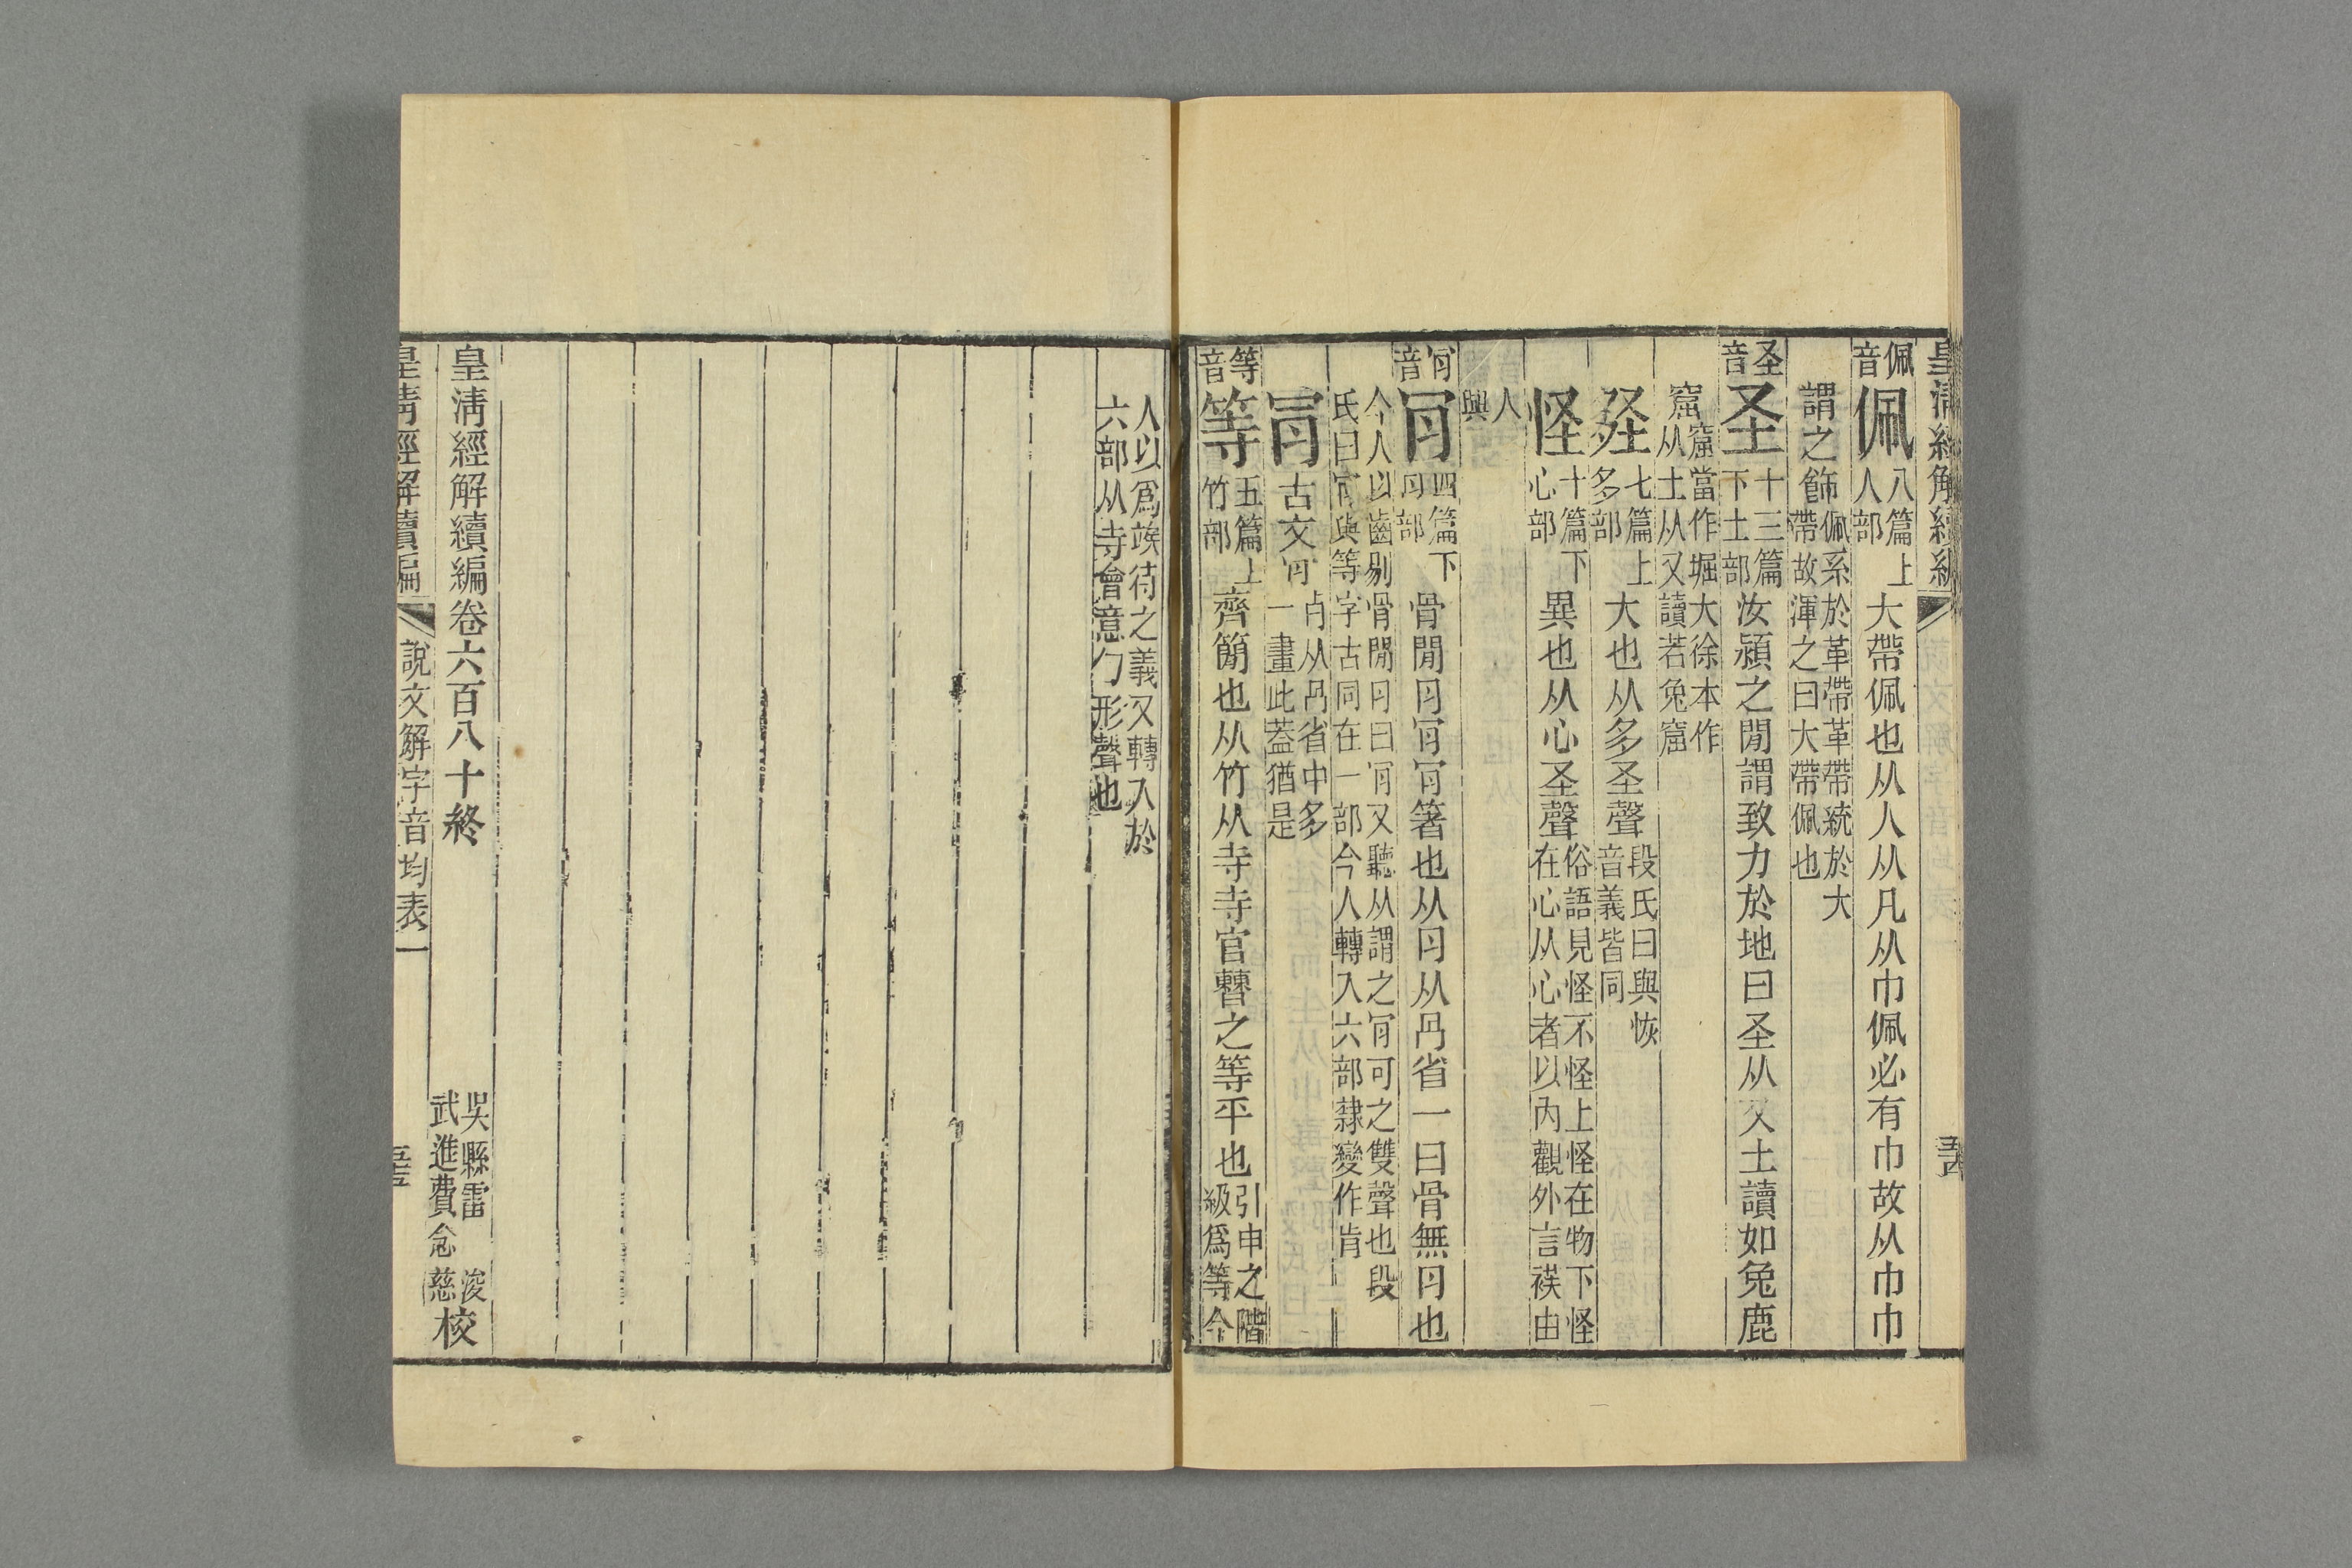 皇清經解續編
佩音 佩 八篇上人部 大帶佩也从人从凡从巾佩必有巾故从巾巾
謂之飾 佩系於革帶革帶統於大帶故渾之曰大帶佩也
圣音 圣 十三篇下土部 汝潁之閒謂致力於地曰圣从又土讀如兔鹿
窟 窟當作堀大徐本作从土从又讀若兔窟
𡖪 七篇上多部 大也从多圣聲 段氏曰與恢音義皆同
怪 十篇下心部 異也从心圣聲 俗語見怪不怪上怪在物下怪在心从心者以內觀外言祦由
人與
肎音 肎 四篇下冎部 骨閒冃肎肎箸也从冃从冎省一曰骨無冃也
今人以齒剔骨閒冃曰肎又聽从謂之肎可之雙聲也段氏曰肎與等字古同在一部今人轉入六部隸變作肯
肎 古文肎 𠕎从冎省中多一畫此葢猶是
等音 等 五篇上竹部 齊簡也从竹从寺寺官朁之等平也 引申之階級爲等今
人以爲竢待之義又轉入於六部从寺會意勹形聲也
皇清經解續編卷六百八十終 吳縣雷浚 武進費念慈 校
皇清經解續編 說文解字音均表一